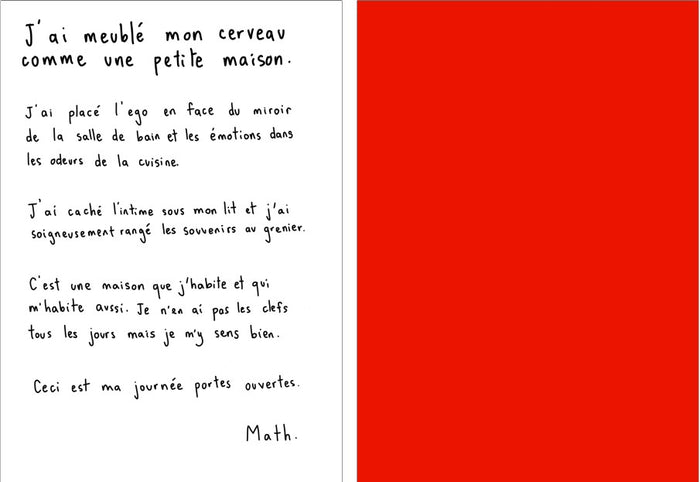 J'ai meublé mon cerveau
comme une petite maison.
J'ai placé l'ego en face du miroir
de la salle de bain et les émotions dans
les odeurs de la cuisine.
J'ai caché l'intime sous mon lit et j'ai
soigneusement rangé les souvenirs au grenier.
C'est une maison que j'habite et qui
m'habite aussi. Je n'en ai pas les clefs
tous les jours mais je m'y sens bien.
Ceci est ma journée portes ouvertes.
Math.